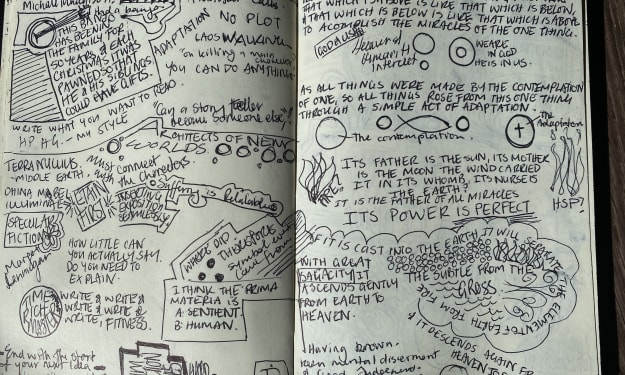 Michael
NO PLOT
THIS BANJO
HAS BEEN IN
THE FAMILY FOR
50 YEARS & EACH
CHRISTMAS IT WAS
PAWNED SO THAT
HE & HIS SIBLINGS
COULD HAVE GIFTS.
ADAPTATION
LAOS WALKING
"on killing a main character"
YOU CAN DO ANYTHING
WRITE WHAT YOU WANT TO READ
HP HG - MY STYLE
"Can a story teller
become someone else"?
ARCHITECTS OF NEW
WORLDS
TERRA NULLIUS
- MIDDLE EARTH
Must connect
the characters
CHINA
ILLUMINATES
Suffering is Relatable
SPECULAR
FICTIONS
INJECTING
EXPOSITION
SEAMLESSLY
HOW LITTLE CAN
YOU ACTUALLY SAY.
DO YOU NEED TO
EXPLAIN.
WHERE DID
THIS
symbol
came from
WRITE & WRITE &
WRITE & WRITE &
WRITE. FITNESS.
I THINK THE PRIMA
MATERIA IS
A: SENTIENT.
B: HUMAN.
- End with the start
of your next idea -
THAT WHICH IS ABOVE IS LIKE THAT WHICH IS BELOW,
& THAT WHICH IS BELOW IS LIKE THAT WHICH IS ABOVE
TO ACCOMPLISH THE MIRACLES OF THE ONE THING.
GOD & US
Heaven &
Humanity
Intersect
WE ARE
IN GOD
HE IS IN US.
AS ALL THINGS WERE MADE BY THE CONTEMPLATION
OF ONE, SO ALL THINGS ROSE FROM THIS ONE THING
THROUGH A SIMPLE ACT OF ADAPTATION.
The contemplation.
The Adaptation
ITS FATHER IS THE SUN, ITS MOTHER
IS THE MOON THE WIND CARRIED
IT IN ITS WHOMB, ITS NURSE IS
THE EARTH.
IT IS THE FATHER OF ALL MIRACLES
HSP?
ITS POWER IS PERFECT
IF IT IS CAST INTO THE EARTH IT WILL SEPARATE
THE ELEMENT OF EARTH FROM THE
THE SUBTLE FROM THE
GROSS
WITH GREAT
SAGACITY IT
ASCENDS GENTLY
FROM EARTH TO
HEAVEN.
& IT DESCENDS AGAIN
HEAVEN TO
Having known.
keen mental discernment
& Good Judgement.